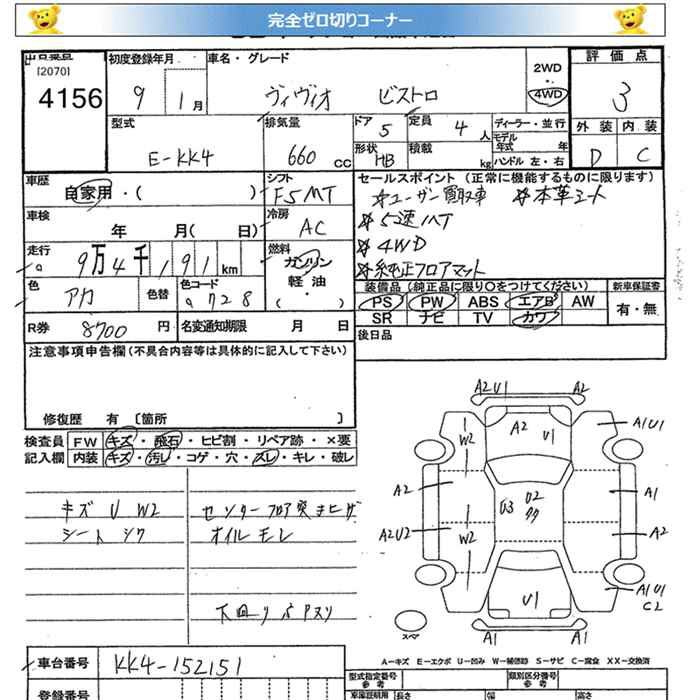 完全ゼロ切りコーナー
出品番号 [2070] 4156
初度登録年月 9 1月
車名・グレード ヴィヴィオ ビストロ
2WD ・ 4WD
評価点 3
型式 E-KK4
排気量 660 cc
ドア 5 定員 4 人
形状 HB 積載 kg
ディーラー・並行
モデル年式 年
ハンドル 左・右
外装 D 内装 C
車歴 自家用・( )
シフト F5MT
セールスポイント (正常に機能するものに限ります)
☆ユーザー買取車 ☆本革シート
☆5速MT
☆4WD
☆純正フロアマット
車検 年 月( 日)
冷房 AC
走行 9万4千191km
燃料 ガソリン・軽油・( )
色 アカ 色替 色コード 728
装備品 (純正品に限り○をつけてください) 新車保証書
PS PW ABS エアB AW 有・無
SR ナビ TV カワ
R券 8700 円 名変通知期限 月 日
後日品
注意事項申告欄(不具合内容等は具体的に記入して下さい)
修復歴 有 [箇所 ]
検査員 FW キズ・飛石・ヒビ割・リペア跡・×要
記入欄 内装 キズ・汚レ・コゲ・穴・スレ・キレ・破レ
キズ U W2 センターフロア突キヒゲ
シート シワ オイルモレ
下回りサビ パスリ
A2U1 A2
W2 A2 U1 A1U1
A2 U3 U2 タタ A1
A2U2 W2 A2
U1 A1U1 C2
スペア A1 A1
A−キズ E−エクボ U−凹み W−補修跡 S−サビ C−腐食 XX−交換済
車台番号 KK4-152151
型式指定番号 参考 類別区分番号 参考
登録番号 車庫証明用 長さ 幅 高さ